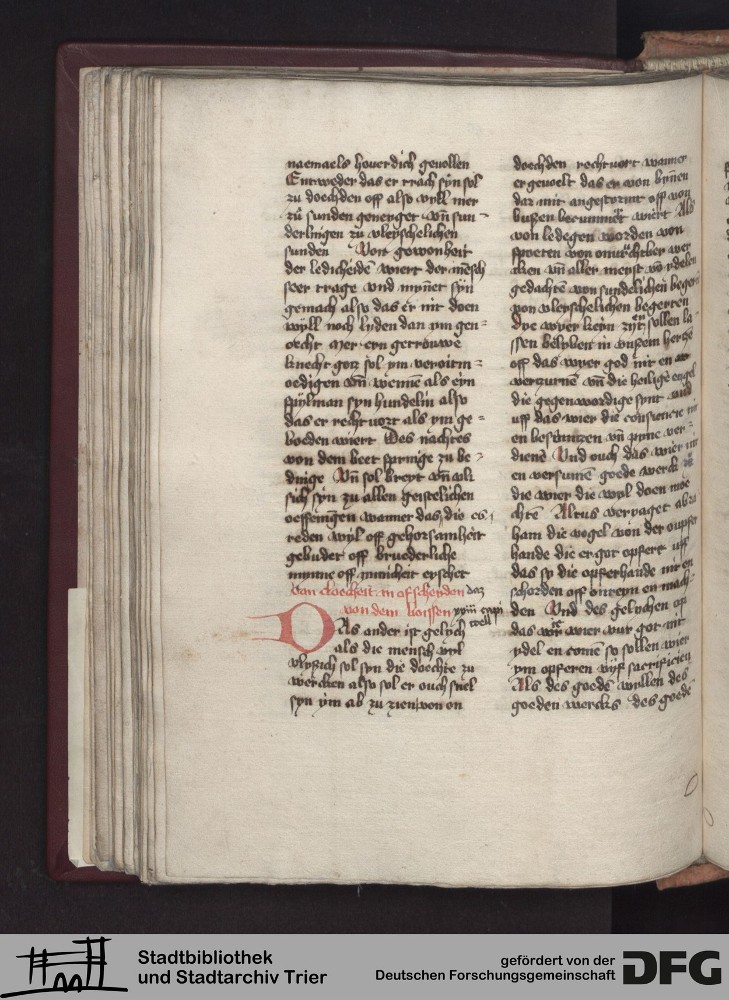 naemaels houerdich geuollen
Entweder das er trach sÿn sol
zu doechden off also vyll mer
zu sunden geneyget vn̄ sun-
derlingen zu vleyschelichen
sunden Von gewonheit
der ledicheidē wiert der mēsch
seer trage vnd mÿnet sÿn
gemach also das er nit doen
wÿll noch lyden dan ym gen-
oecht Mer eyn getrouwe
knecht gotz sol ym veroitm-
oedigen vn̄ als eyn
spÿlman syn hundelin also
das er recht vort als ym ge-
boeden wiert Des nachtes
von dem beet springe zu be-
dinge Vn̄ sol breyt vn̄
sich sÿn zu allen geistelichen
oeffeningen wanner das die
reden wÿl off gehorsamheit
gebudet off bruederliche
mynne off ynnicheit erschet
Van doecheit in affschenden
von dem boissen xviii capi
tell
DAs ander ist gelych
als die mensch
vlyszich sol syn die doechte zu
wercken also sol er ouch snel
syn ym ab zu zien von on
doechden recht vort wanner
er geuoelt das er von bÿnen
dar mit angestormt off von
buszen becummert wiert Als
von ledegen worden von
spoeten von werc-
ken vn̄ aller meyst vō ydelen
gedachtē von sundelichen begern
von vleischelichen begerten
Dye wyer keyn zÿt sollen la-
ssen bliben in vnszem hertzē
off das wyer god nit en
vertzurnē vn̄ die heilige engel
die gegenwordige synt vnd
vff das wier die consciencie nit
en besmitzen vn̄ pyne ver-
dienē Vnd ouch das wier nit
en versumē goede werck
die wier die wyl doen moe
chtē Altus veryaget abra
ham die vogel von der oupfer
hande die er got opfert vff
das sy die opferhande nit en
schorden off onreyn en mach-
den Vnd des gelychen off
das wir got nit
ydel en come so sollen wier
ym opferen sacrificien
Als des goedē wyllen des
goeden wercks des goede
Stadtbibliothek
und Stadtarchiv Trier
gefördert von der
Deutschen Forschungsgemeinschaft
DFG